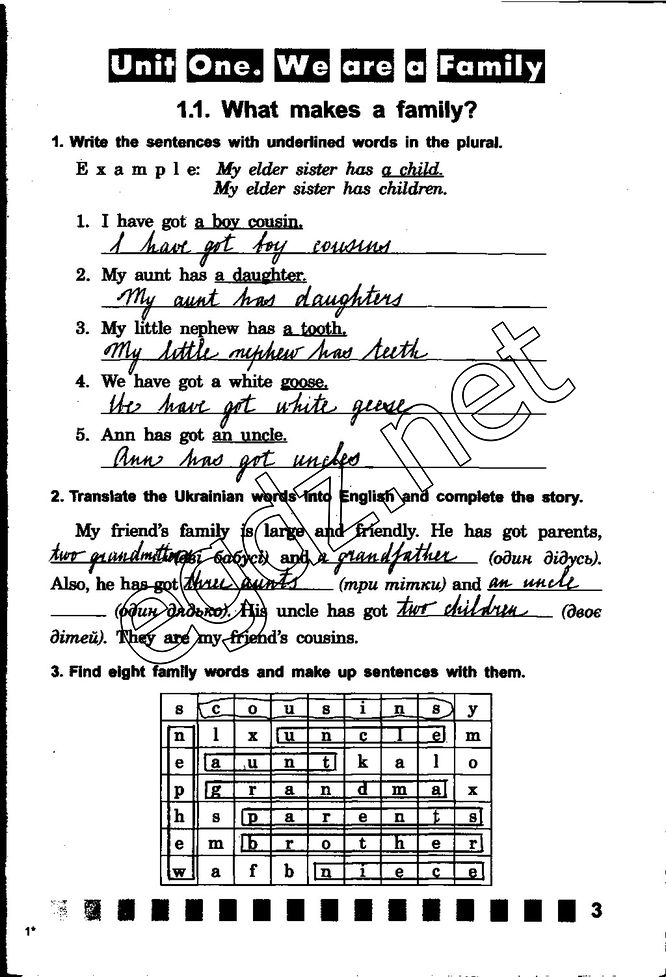 Unit One. We are a Family
1.1. What makes a family?
1. Write the sentences with underlined words in the plural.
E x a m p l e: My elder sister has a child.
My elder sister has children.
1. I have got a boy cousin.
I have got boy cousins
2. My aunt has a daughter.
My aunt has daughters
3. My little nephew has a tooth.
My little nephew has teeth
4. We have got a white goose.
We have got white geese
5. Ann has got an uncle.
Ann has got uncles
2. Translate the Ukrainian words into English and complete the story.
My friend's family is large and friendly. He has got parents,
two grandmothers (дві бабусі) and a grandfather (один дідусь).
Also, he has got three aunts (три тітки) and an uncle
(один дядько). His uncle has got two children (двоє
дітей). They are my friend's cousins.
3. Find eight family words and make up sentences with them.
s c o u s i n s y
n l x u n c l e m
e a u n t k a l o
p g r a n d m a x
h s p a r e n t s
e m b r o t h e r
w a f b n i e c e
3
1*
egdz.net